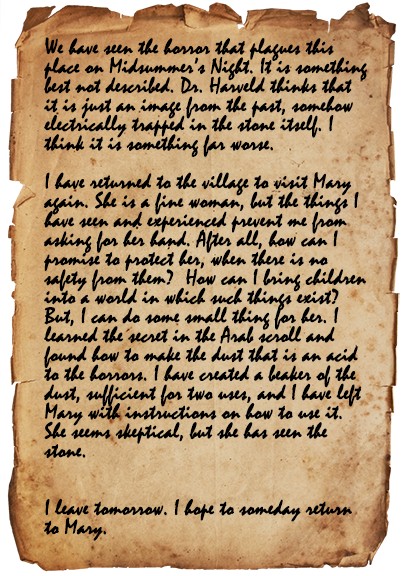 We have seen the horror that plagues this
place on Midsummer's Night. It is something
best not described. Dr. Harveld thinks that
it is just an image from the past, somehow
electrically trapped in the stone itself. I
think it is something far worse.

I have returned to the village to visit Mary
again. She is a fine woman, but the things I
have seen and experienced prevent me from
asking for her hand. After all, how can I
promise to protect her, when there is no
safety from them? How can I bring children
into a world in which such things exist?
But, I can do some small thing for her. I
learned the secret in the Arab scroll and
found how to make the dust that is an acid
to the horrors. I have created a beaker of the
dust, sufficient for two uses, and I have left
Mary with instructions on how to use it.
She seems skeptical, but she has seen the
stone.

I leave tomorrow. I hope to someday return
to Mary.